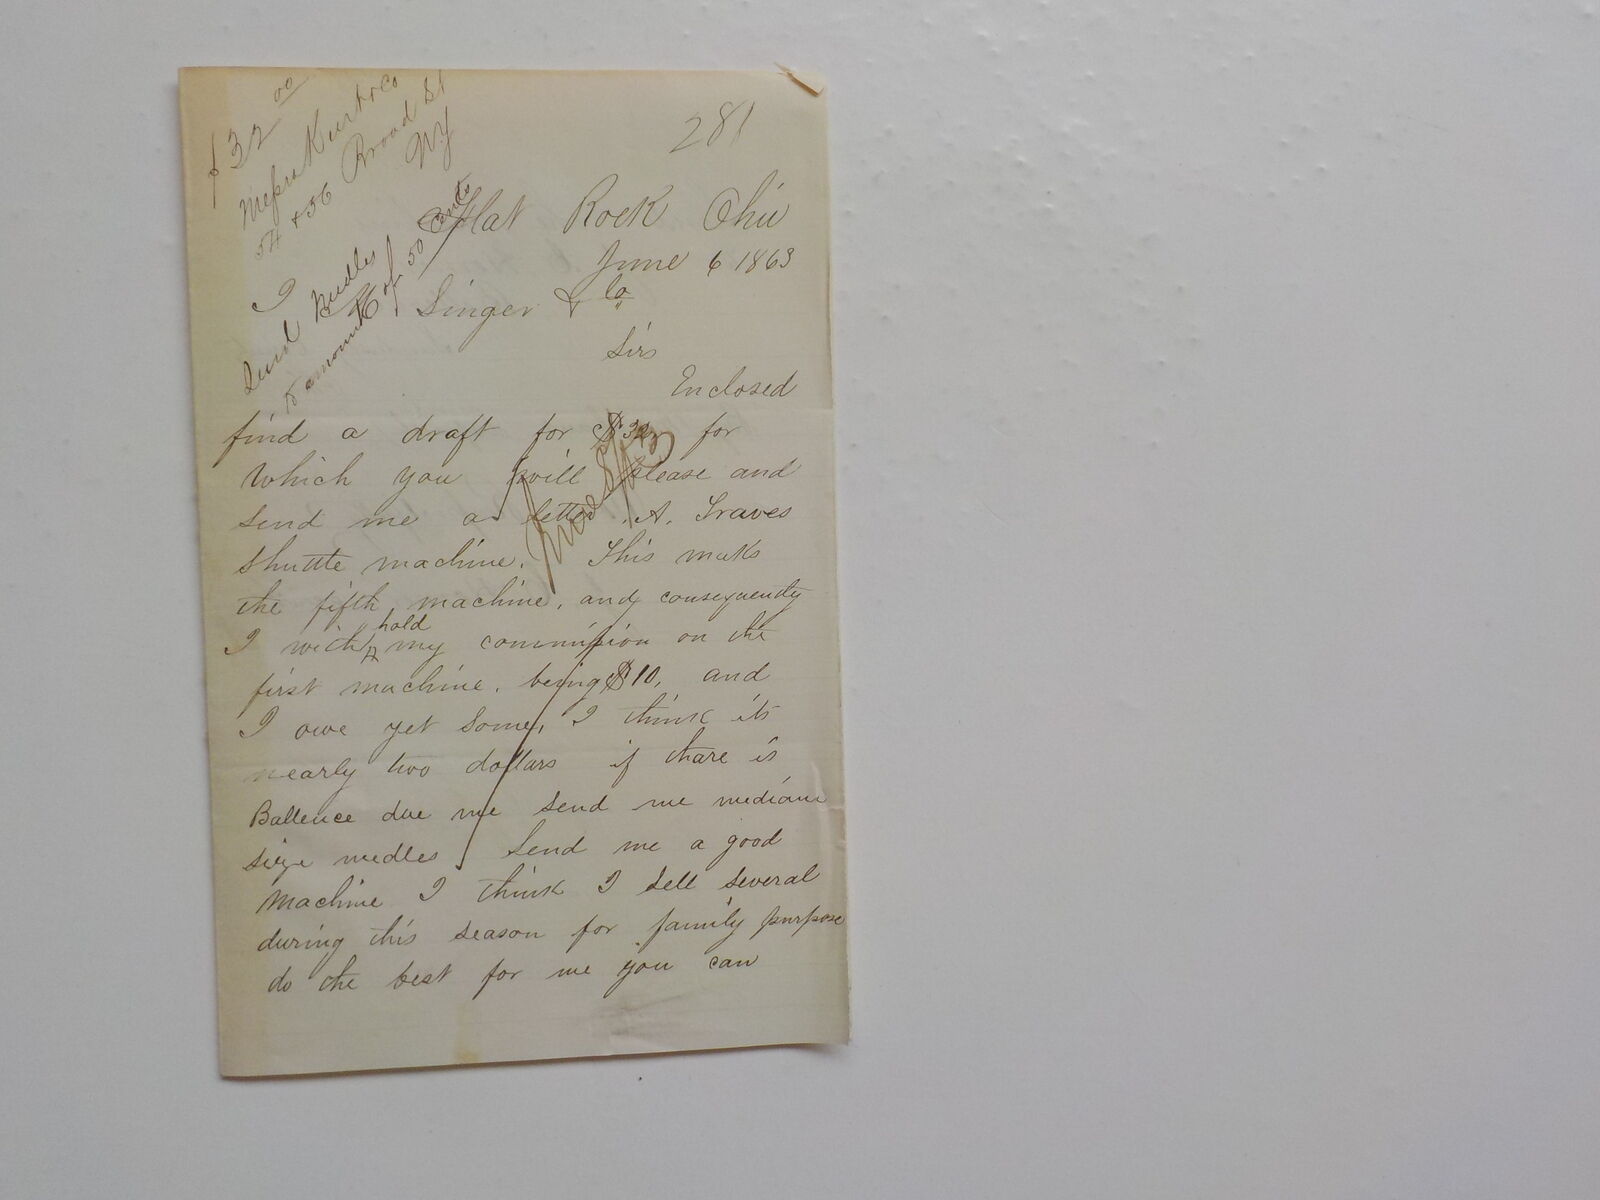 $32 00
Messrs Kurtz & Co
54 & 56 Broad St
NY
281
Flat Rock Ohio
June 6 1863
I. M. Singer & Co
Send Needles
to amount of 50 cents
Sirs
Enclosed
find a draft for $32 for
which you will please and
send me a letter A. Graves
shuttle machine. This maks
the fifth machine, and consequently
I with hold my commission on the
first machine. being $10, and
I owe yet some, I think its
nearly two dollars if thare is
Ballence due me send me medium
size needles Send me a good
Machine I think I sell several
during this season for family purpose
do the best for me you can